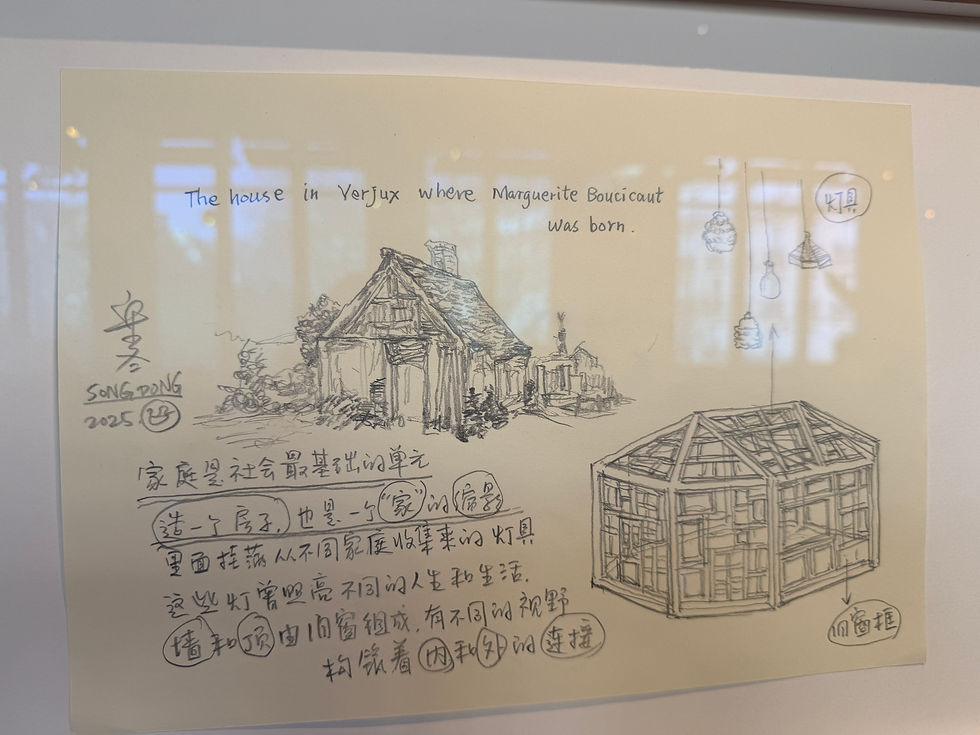 The house in Verjux where Marguerite Boucicaut
was born.
灯具
SONG DONG
2025
家庭是社会最基础的单元
造一个房子,也是一个“家”的缩影
里面挂满从不同家庭收集来的灯具
这些灯曾照亮不同的人生和生活.
墙和顶由旧窗组成,有不同的视野
构筑着内和外的连接
旧窗框